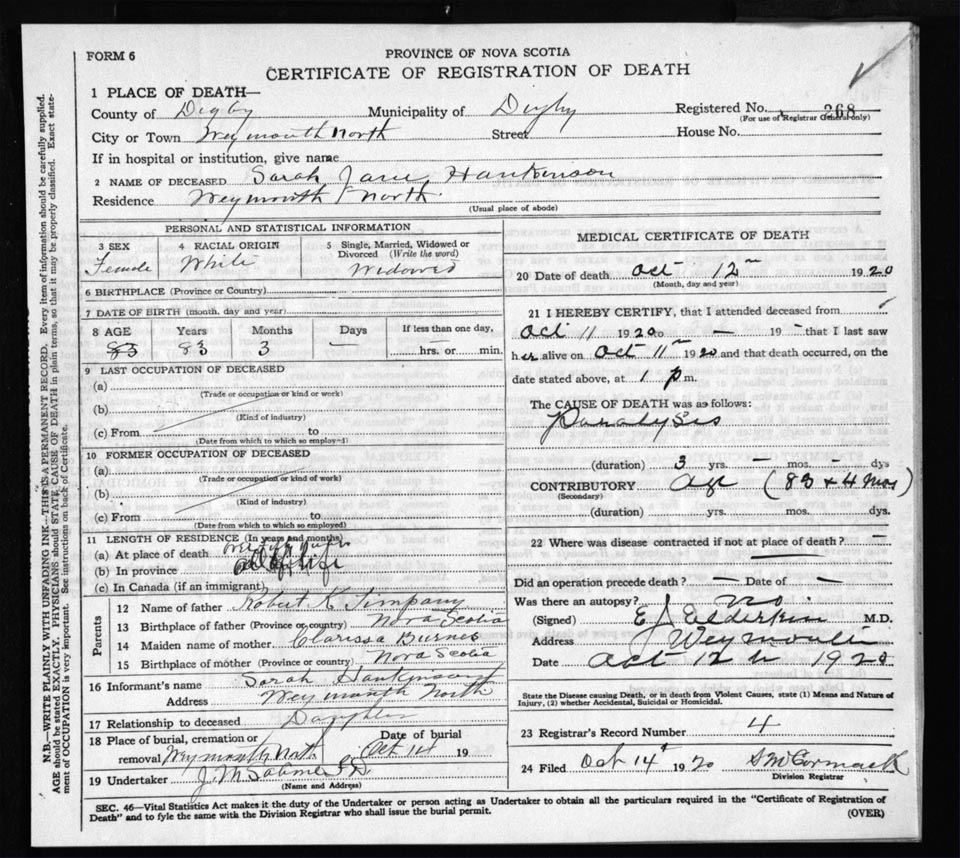 FORM 6
PROVINCE OF NOVA SCOTIA
CERTIFICATE OF REGISTRATION OF DEATH
1 PLACE OF DEATH—
County of Digby Municipality of Digby Registered No. 268
(For use of Registrar General only)
City or Town Weymouth North Street House No.
If in hospital or institution, give name
2 NAME OF DECEASED Sarah Jane Hankinson
Residence Weymouth North
(Usual place of abode)
PERSONAL AND STATISTICAL INFORMATION
3 SEX Female
4 RACIAL ORIGIN White
5 Single, Married, Widowed or Divorced (Write the word) Widowed
6 BIRTHPLACE (Province or Country)
7 DATE OF BIRTH (month, day and year)
8 AGE Years Months Days If less than one day,
83 83 3 — hrs. or min.
9 LAST OCCUPATION OF DECEASED
(a)
(Trade or occupation or kind or work)
(b)
(Kind of industry)
(c) From to
(Date from which to which so employed)
10 FORMER OCCUPATION OF DECEASED
(a)
(Trade or occupation or kind of work)
(b)
(Kind of industry)
(c) From to
(Date from which to which so employed)
11 LENGTH OF RESIDENCE (In years and months)
(a) At place of death
(b) In province all of life
(c) In Canada (if an immigrant)
Parents
12 Name of father Robert K Timpany
13 Birthplace of father (Province or country) Nova Scotia
14 Maiden name of mother Clarissa Burnes
15 Birthplace of mother (Province or country) Nova Scotia
16 Informant's name Sarah Hankinson
Address Weymouth North
17 Relationship to deceased Daughter
18 Place of burial, cremation or removal Weymouth North Date of burial Oct 14 19
19 Undertaker J. M.
(Name and Address)
MEDICAL CERTIFICATE OF DEATH
20 Date of death Oct 12 1920
(Month, day and year)
21 I HEREBY CERTIFY, that I attended deceased from
Oct 11 1920 to — 19 — that I last saw
her alive on Oct 11 1920 and that death occurred, on the
date stated above, at 1 p m.
The CAUSE OF DEATH was as follows:
Paralysis
(duration) 3 yrs. — mos. dys
CONTRIBUTORY Age (83 + 4 Mos)
(Secondary)
(duration) yrs. mos. dys.
22 Where was disease contracted if not at place of death? —
Did an operation precede death? — Date of —
Was there an autopsy? no
(Signed) E J Elderkin M.D.
Address Weymouth
Date Oct 12 1920
State the Disease causing Death, or in death from Violent Causes, state (1) Means and Nature of
Injury, (2) whether Accidental, Suicidal or Homicidal.
23 Registrar's Record Number 4
24 Filed Oct 14 1920 S McCormack
Division Registrar
SEC. 46—Vital Statistics Act makes it the duty of the Undertaker or person acting as Undertaker to obtain all the particulars required in the "Certificate of Registration of
Death" and to fyle the same with the Division Registrar who shall issue the burial permit.
(OVER)
N.B.—WRITE PLAINLY WITH UNFADING INK—THIS IS A PERMANENT RECORD. Every item of information should be carefully supplied.
AGE should be stated EXACTLY. PHYSICIANS should STATE CAUSE OF DEATH in plain terms, so that it may be properly classified. Exact state-
ment of OCCUPATION is very important. See instructions on back of Certificate.